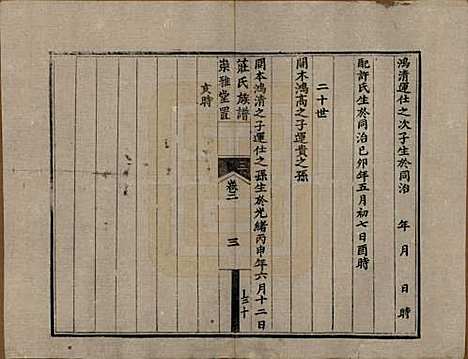 鴻清運仕之次子生於同治　年　月　日　時
配許氏生於同治己卯年五月初七日酉時
二十世
開木鴻高之子運貴之孫
開本鴻清之子運仕之孫生於光緒丙申年六月十二日
亥時
莊氏族譜
崇雅堂置
卷二
三